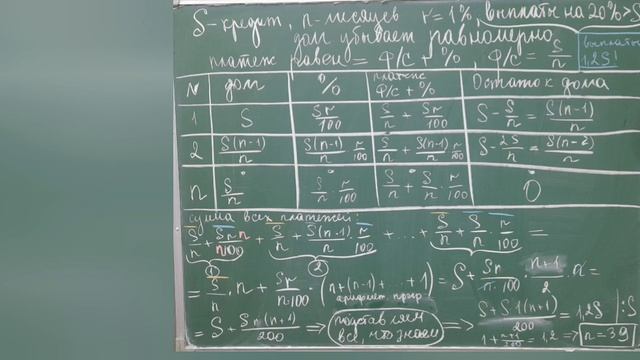 S-кредит, n-месяцев r=1%, выплаты на 20%>S
долг убывает равномерно выплаты
платеж равен = Ф/с + %, Ф/с = S/n 1,2S!
N долг % платеж Ф/с + % Остаток долга
1 S Sr/100 S/n + Sr/100 S - S/n = S(n-1)/n
2 S(n-1)/n S(n-1)/n · r/100 S/n + S(n-1)/n · r/100 S - 2S/n = S(n-2)/n
n S/n S/n · r/100 S/n + S/n · r/100 0
сумма всех платежей:
S/n + + S/n + S(n-1)/n · r/100 + ... + S/n + S/n · r/100 =
1 2
= S/n · n + Sr/n·100 · (n+(n-1)+...+1) = S + Sr/n·100 · n+1/2 · n =
арифмет. прогр
= S + S (n+1)/200 ⇒ подставляем все, что знаем ⇒ S + S·1(n+1)/200 = 1,2S |:S
1 + n+1/200 = 1,2 ⇒ n=39